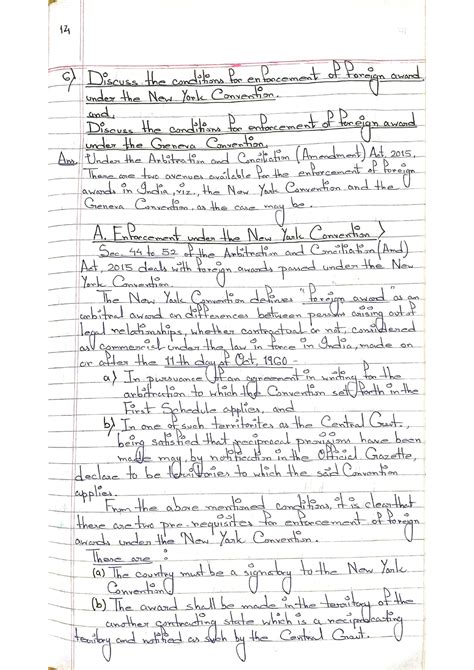 14
6) Discuss the conditions for enforcement of foreign award
under the New York Convention.
and
Discuss the conditions for enforcement of foreign award
under the Geneva Convention.
Ans. Under the Arbitration and Conciliation (Amendment) Act, 2015,
There are two avenues available for the enforcement of foreign
awards in India, viz, the New York Convention and the
Geneva Convention, as the case may be.
A. Enforcement under the New York Convention >
Sec. 44 to 52 of the Arbitration and Conciliation (Amd)
Act, 2015 deals with foreign awards passed under the New
York Convention.
The New York Convention defines "foreign award" as an
arbitral award on differences between persons arising out of
legal relationships, whether contractual or not, considered
as commercial under the law in force in India, made on
or after the 11th day of Oct, 1960 -
a) In pursuance of an agreement in writing for the
arbitration to which the Convention set forth in the
First Schedule applies, and
b) In one of such territories as the Central Govt.,
being satisfied that reciprocal provisions have been
made may, by notification in the Official Gazette,
declare to be territories to which the said Convention
applies.
From the above mentioned conditions, it is clear that
there are two pre-requisites for enforcement of foreign
awards under the New York Convention.
These are :
(a) The country must be a signatory to the New York
Convention
(b) The award shall be made in the territory of the
another contracting state which is a reciprocating
territory and notified as such by the Central Govt.